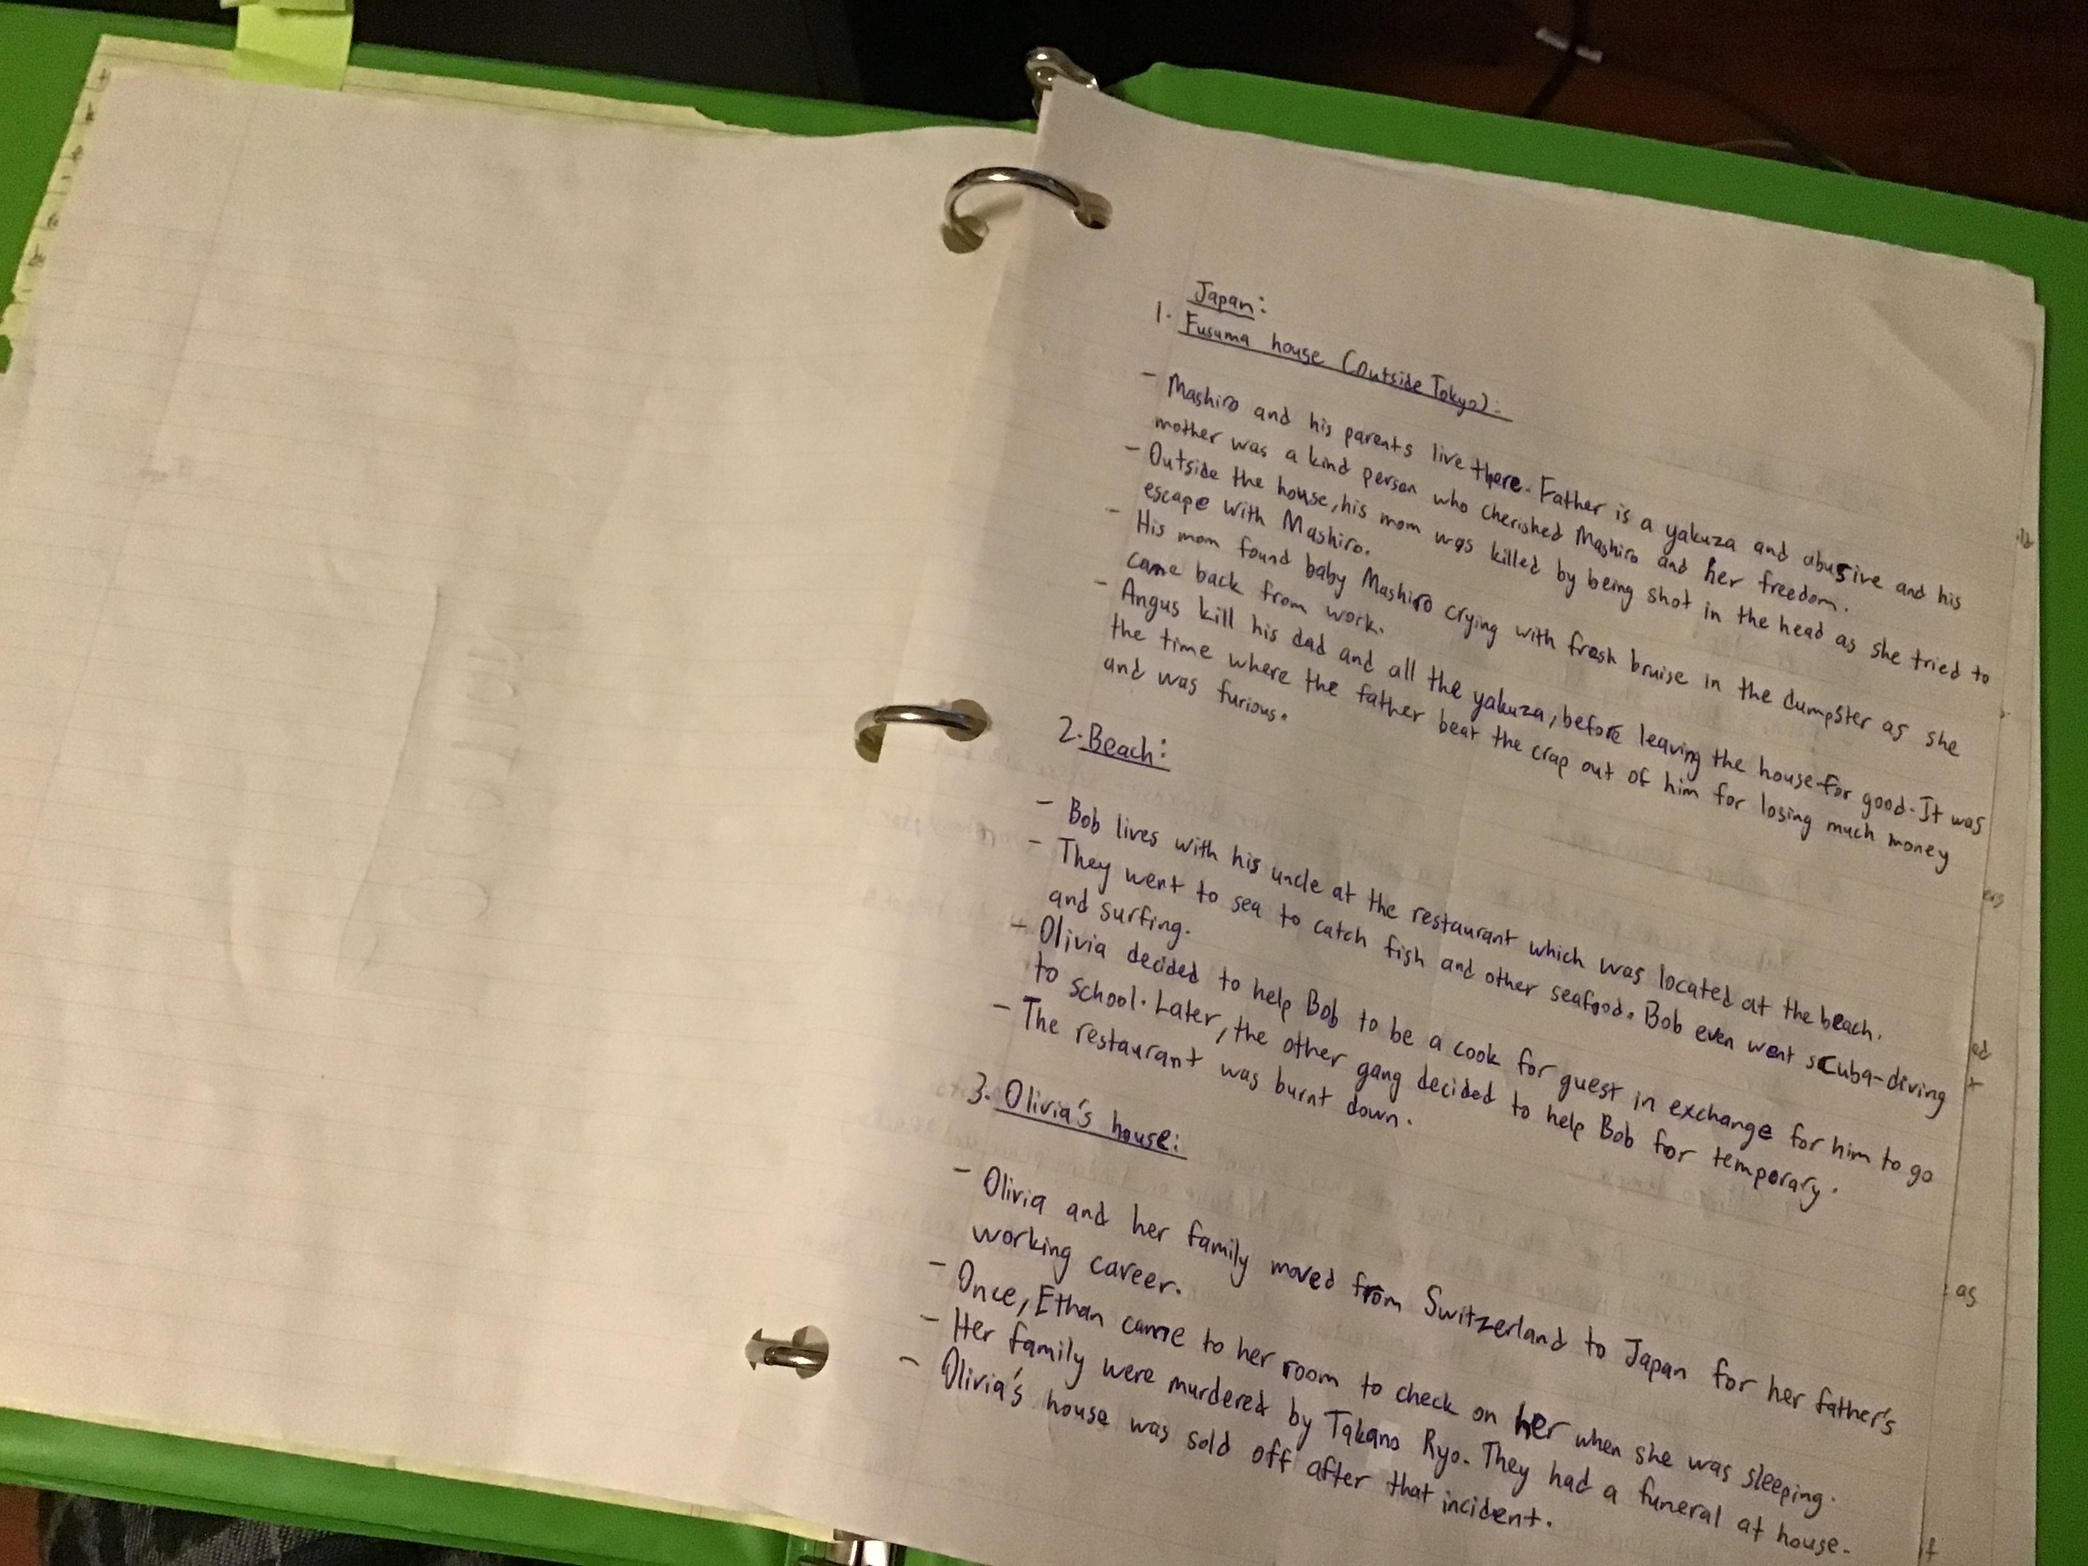 Japan:
1. Fusuma house (outside Tokyo):
- Mashiro and his parents live there. Father is a yakuza and abusive and his
mother was a kind person who cherished Mashiro and her freedom.
- Outside the house, his mom was killed by being shot in the head as she tried to
escape with Mashiro.
- His mom found baby Mashiro crying with fresh bruise in the dumpster as she
came back from work.
- Angus kill his dad and all the yakuza, before leaving the house for good. It was
the time where the father beat the crap out of him for losing much money
and was furious.
2. Beach:
- Bob lives with his uncle at the restaurant which was located at the beach.
- They went to sea to catch fish and other seafood. Bob even went scuba-diving
and surfing.
- Olivia decided to help Bob to be a cook for guest in exchange for him to go
to school. Later, the other gang decided to help Bob for temporary.
- The restaurant was burnt down.
3. Olivia's house:
- Olivia and her family moved from Switzerland to Japan for her father's
working career.
- Once, Ethan came to her room to check on her when she was sleeping.
- Her family were murdered by Takano Ryo. They had a funeral at house.
- Olivia's house was sold off after that incident.